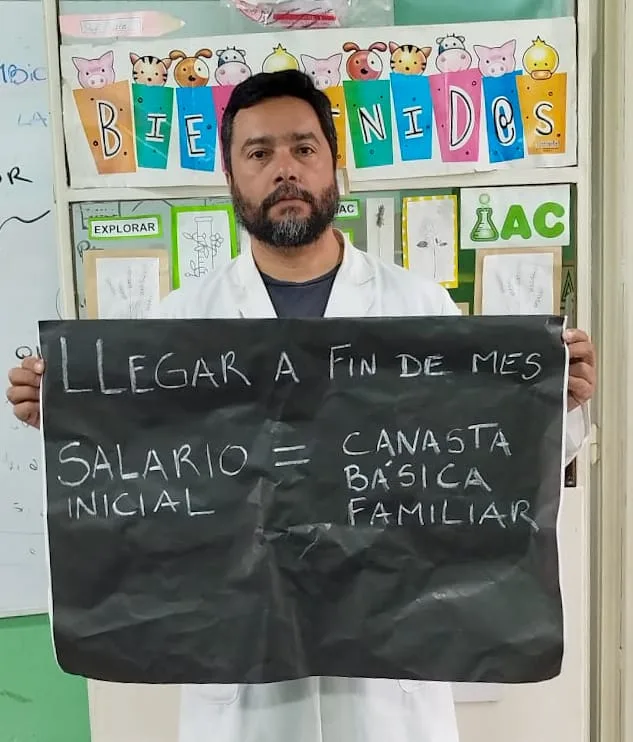 BIENVENID@S
EXPLORAR
AC
AC
LLEGAR A FIN DE MES
SALARIO = CANASTA
INICIAL BÁSICA
FAMILIAR